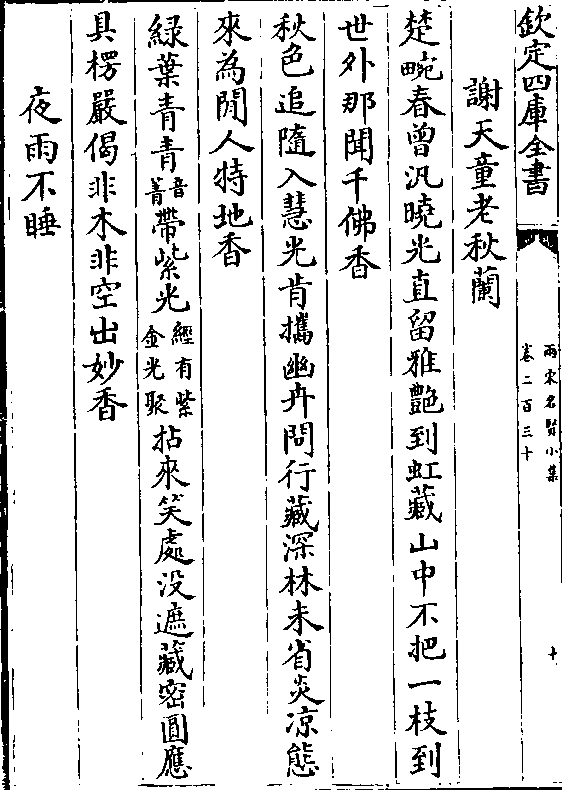 欽定四庫全書
兩宋名賢小集
卷二百三十
十
謝天童老秋蘭
楚畹春曽汎曉光直留雅艶到虹藏山中不把一枝到
世外那聞千佛香
秋色追隨入慧光肯攜幽卉問行藏深林未省炎凉態
來為閒人特地香
緑葉青青音菁帶紫光經有紫金光聚拈來笑處没遮藏密圓應
具楞嚴偈非木非空出妙香
夜雨不睡